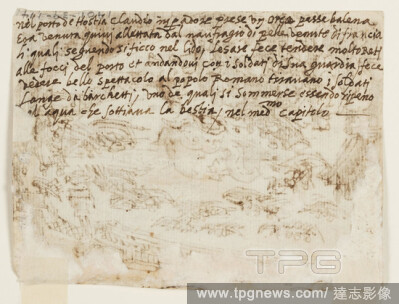 Nel porto de Hostia Claudio imperadore prese un orca pesse balena
era venuta quivi allettata dal naufragio di pelle venute di francia
li quali seguendo si ficco nel lido, Cesare fece tendere molte reti
alle focci del porto et andandovi con i soldati di sua guardia fece
vedere bello spettacolo al popolo Romano tiravano i soldati
lanze da barchetti, uno de quali si sommerse essendo ripieno
d'aqua che soffiava la bestia, nel med.mo capitolo
TPG
www.tpgnews.com / 達志影像